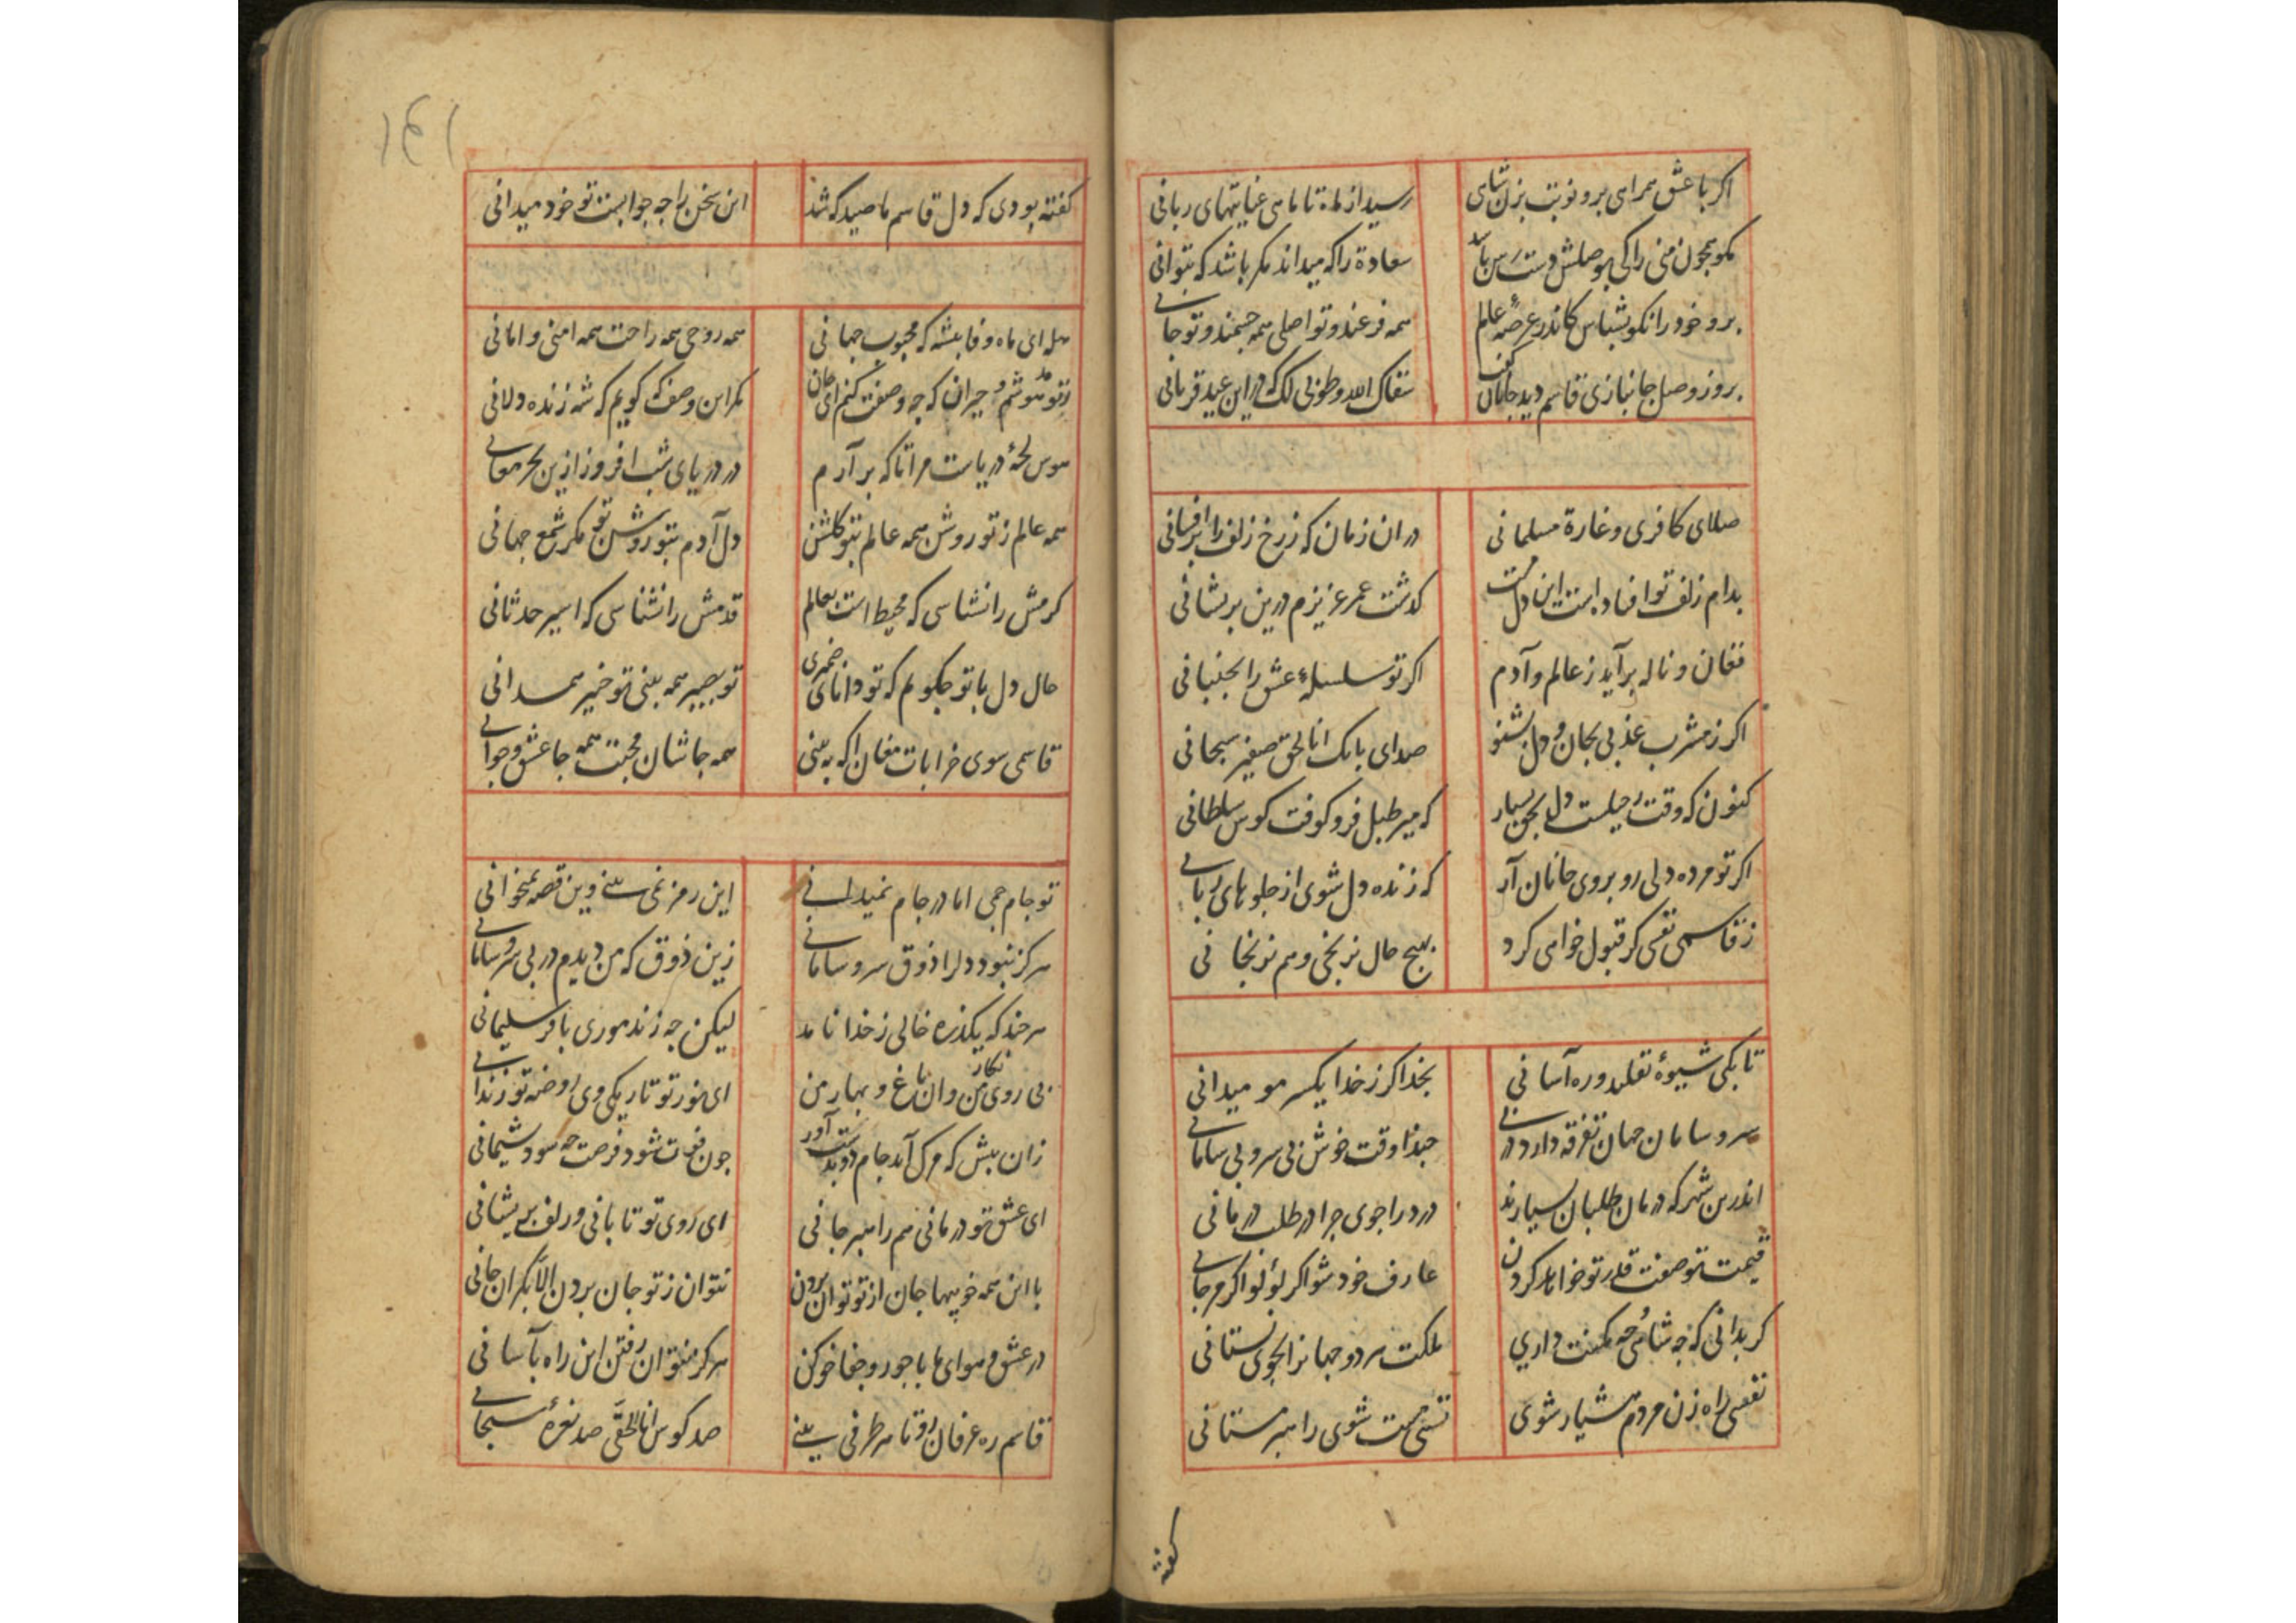 اکر با عشق همراهی برو نوبت بزن شاهی
رسید از ماه تا ماهی عنایتهای ربانی
مکو همچون منی را کی بوصلش دست رس باشد
سعادة را که میداند مکر باشد که بتوانی
برو خود را نکو بشناس کاندر عرصهٔ عالم
همه فرعند و تو اصلی همه جسمند و تو جانی
بروز وصل جانبازی قاسم دید جانان گفت
سقاک الله و طوبی لک که در این عید قربانی
صلای کافری و غارة مسلمانی
در ان زمان که ز رخ زلف را برافشانی
بدام زلف تو افتاده است این دل مست
کذشت عمر عزیزم درین پریشانی
فغان و ناله برآید ز عالم و آدم
اکر تو سلسلهٔ عشق را بجنبانی
اکر ز مشرب عذبی بجان و دل بشنو
صدای بانک انا الحق صفیر سبحانی
کنون که وقت رحیلست دل بحق بسپار
که میر طبل فرو کوفت کوس سلطانی
اکر تو مرده دلی رو بروی جانان آر
که زنده دل شوی از جلوهای ربانی
ز قاسمی نفسی کر قبول خواهی کرد
بهیچ حال نرنجی و هم نرنجانی
تا بکی شیوهٔ تقلید و ره آسانی
بخدا کر ز خدا یکسر مو میدانی
سر و سامان جهان تفرقه دارد در پی
حبذا وقت خوش بی سر و بی سامانی
اندرین شهر که درمان طلبان بسیارند
درد را جوی چرا در طلب درمانی
قیمت تو صفت قدر تو خواهد کردن
عارف خود شو اکر لؤلؤ اکر مرجانی
کر بدانی که چه شاهی چه مکنت داری
ملکت هر دو جهانرا بجوی نستانی
نفسی راه زن مردم هشیار شوی
نفسی مست شوی راهبر مستانی
کفته
کفته بودی که دل قاسم ما صید که شد
این سخن را چه جوابست تو خود میدانی
هله ای ماه وفا پیشه که محبوب جهانی
همه روحی همه راحت همه امنی و امانی
ز تو مدهوشم و حیران که چه وصفت کنم ای جان
مکر این وصف که کویم که شه زنده دلانی
هوس لجهٔ دریاست مرا تا که برآرم
در دریای شب افروز ازین بحر معانی
همه عالم ز تو روشن همه عالم بتو کلشن
دل آدم بتو روشن تو مکر شمع جهانی
کرمش را نشناسی که محیط است بعالم
قدمش را نشناسی که اسیر حدثانی
حال دل با تو چکویم که تو دانای ضمیری
تو بصیر همه بینی تو خبیر همه دانی
قاسمی سوی خرابات مغان را که به بینی
همه جا شان محبت همه جا عشق و جوانی
تو جام جمی اما در جام نمیدانی
این رمز نمی بینی وین قصه نمیخوانی
هرکز نبود دلرا ذوق سر و سامانی
زین ذوق که من دیدم در بی سر و سامانی
هرچند که یکذره خالی ز خدا نامد
لیکن چه زند موری با فر سلیمانی
بی روی نکار من وان باغ و بهار من
ای نور تو تاریکی وی روضه تو زندانی
زان پیش که مرک آید جام دو بدست آور
چون فوت شود فرصت چه سود پشیمانی
ای عشق تو درمانی هم راهبر جانی
ای روی تو تابانی ور لف پریشانی
با این همه خوبیها جان از تو توان بردن
نتوان ز تو جان بردن الا بکران جانی
در عشق و هوای ما با جور و جفا خو کن
هرکز نتوان رفتن این راه بآسانی
قاسم ره عرفان رو تا هر طرفی بینی
صد کوس انا الحقی صد نعرهٔ سبحانی